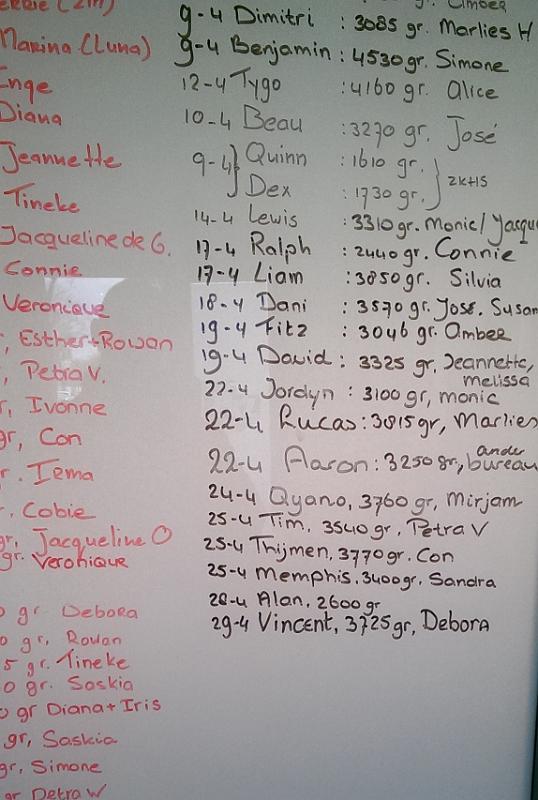 Marina (Luna)
Enge
Diana
Jeannette
Tineke
Jacqueline de G.
Connie
Veronique
, Esther+Rowan
, Petra V.
r, Ivonne
gr, Con
r. Irma
. Cobie
gr, Jacqueline O
gr. Veronique
0 gr Debora
0 gr, Rowan
5 gr. Tineke
0 gr. Saskia
0 gr Diana+Iris
gr, Saskia
gr, Simone
gr Petra W
9-4 Dimitri : 3085 gr. Marlies H
9-4 Benjamin : 4530 gr. Simone
12-4 Tygo : 4160 gr. Alice
10-4 Beau : 3270 gr. José
9-4} Quinn : 1610 gr. } 2k+1s
Dex : 1730 gr.
14-4 Lewis : 3310 gr. Monic/ Jacqu
17-4 Ralph : 2440 gr. Connie
17-4 Liam : 3850 gr. Silvia
18-4 Dani : 3570 gr. José. Susan
19-4 Fitz : 3046 gr. Amber
19-4 David : 3325 gr, Jeannette,
melissa
22-4 Jordyn : 3100 gr, monic
22-4 Lucas : 3815 gr, Marlies
22-4 Aaron : 3250 gr., ander
bureau
24-4 Qyano, 3760 gr, Mirjam
25-4 Tim, 3540 gr, Petra V
25-4 Thijmen, 3770 gr. Con
25-4 Memphis. 3400 gr, Sandra
28-4 Alan, 2600 gr
29-4 Vincent, 3725 gr, Debora